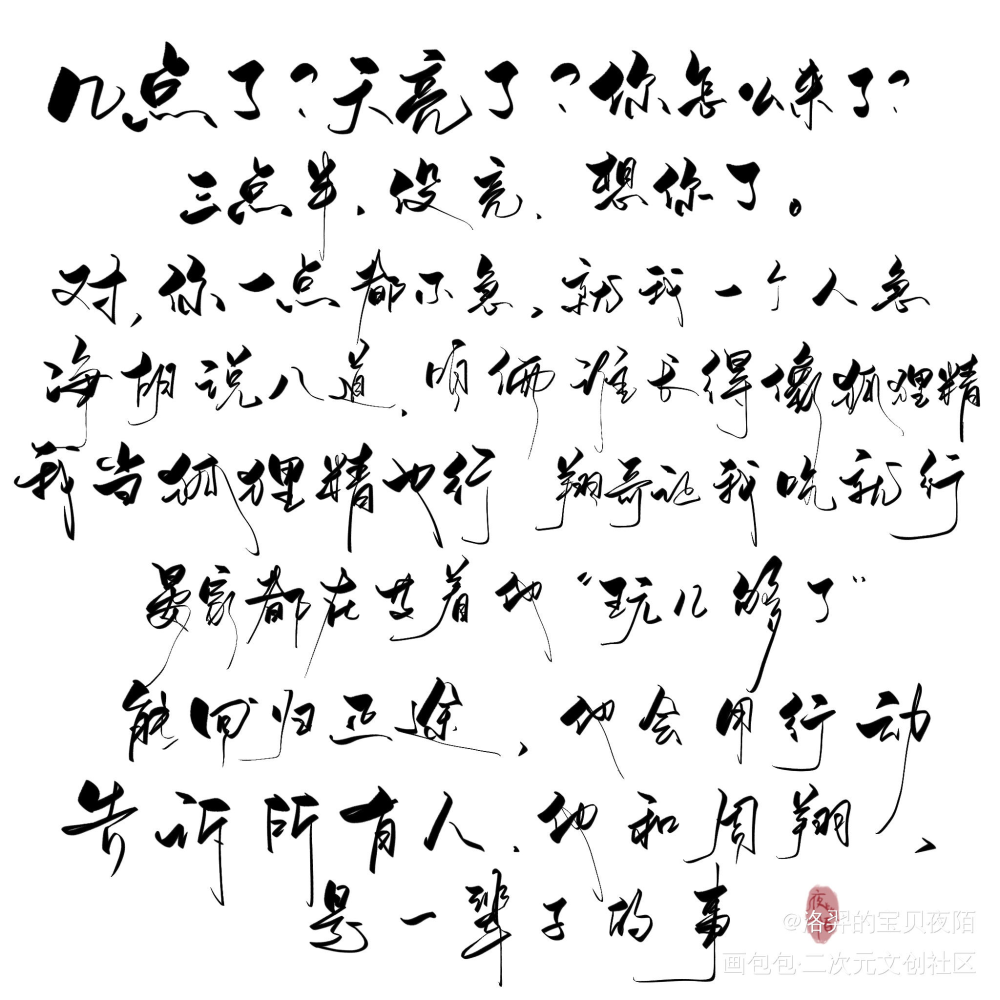 几点了？天亮了？你怎么来了？
三点半，没亮，想你了。
对，你一点都不急，就我一个人急
海胡说八道，咱俩谁长得像狐狸精
我当狐狸精也行 翔哥让我吃就行
晏家都在等着他“玩儿够了”
能回归正途，他会用行动
告诉所有人，他和周翔，
是一辈子的事
夜
@洛羿的宝贝夜陌
画包包·二次元文创社区